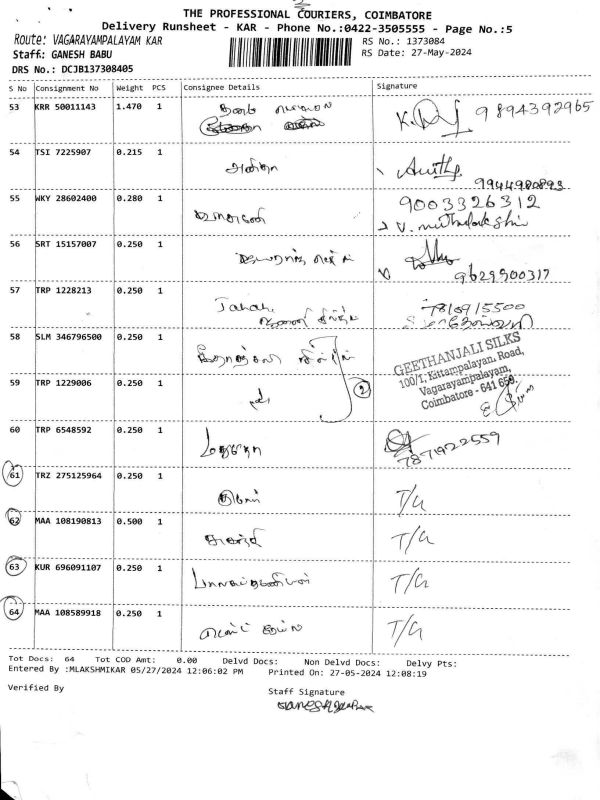 THE PROFESSIONAL COURIERS, COIMBATORE
Delivery Runsheet - KAR - Phone No.:0422-3505555 - Page No.:5
Route: VAGARAYAMPALAYAM KAR
RS No.: 1373084
Staff: GANESH BABU
RS Date: 27-May-2024
DRS No.: DCJB137308405
S No Consignment No Weight PCS Consignee Details Signature
53 KRR 50011143 1.470 1 9894392965
54 TSI 7225907 0.215 1 அனிதா Anitha
9944980893
55 WKY 28602400 0.280 1 9003326312
V.
56 SRT 15157007 0.250 1
9629500317
57 TRP 1228213 0.250 1 7816915500
58 SLM 346796500 0.250 1
GEETHANJALI SILKS
100/1, Kittampalayan, Road,
Vagarayampalayam,
Coimbatore - 641 659.
59 TRP 1229006 0.250 1 2
60 TRP 6548592 0.250 1
7871922559
61 TRZ 275125964 0.250 1 T/G
62 MAA 108190813 0.500 1 T/G
63 KUR 696091107 0.250 1 T/G
64 MAA 108589918 0.250 1 T/G
Tot Docs: 64 Tot COD Amt: 0.00 Delvd Docs: Non Delvd Docs: Delvy Pts:
Entered By :MLAKSHMIKAR 05/27/2024 12:06:02 PM Printed On: 27-05-2024 12:08:19
Verified By Staff Signature